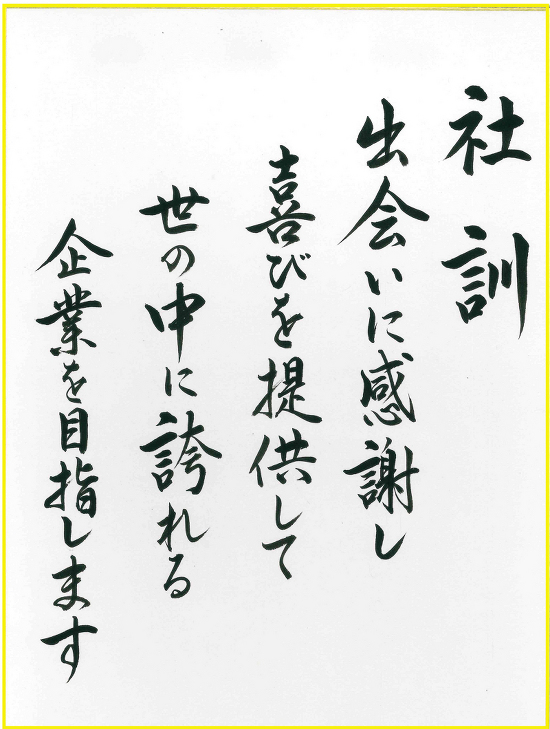 社訓
出会いに感謝し
喜びを提供して
世の中に誇れる
企業を目指します